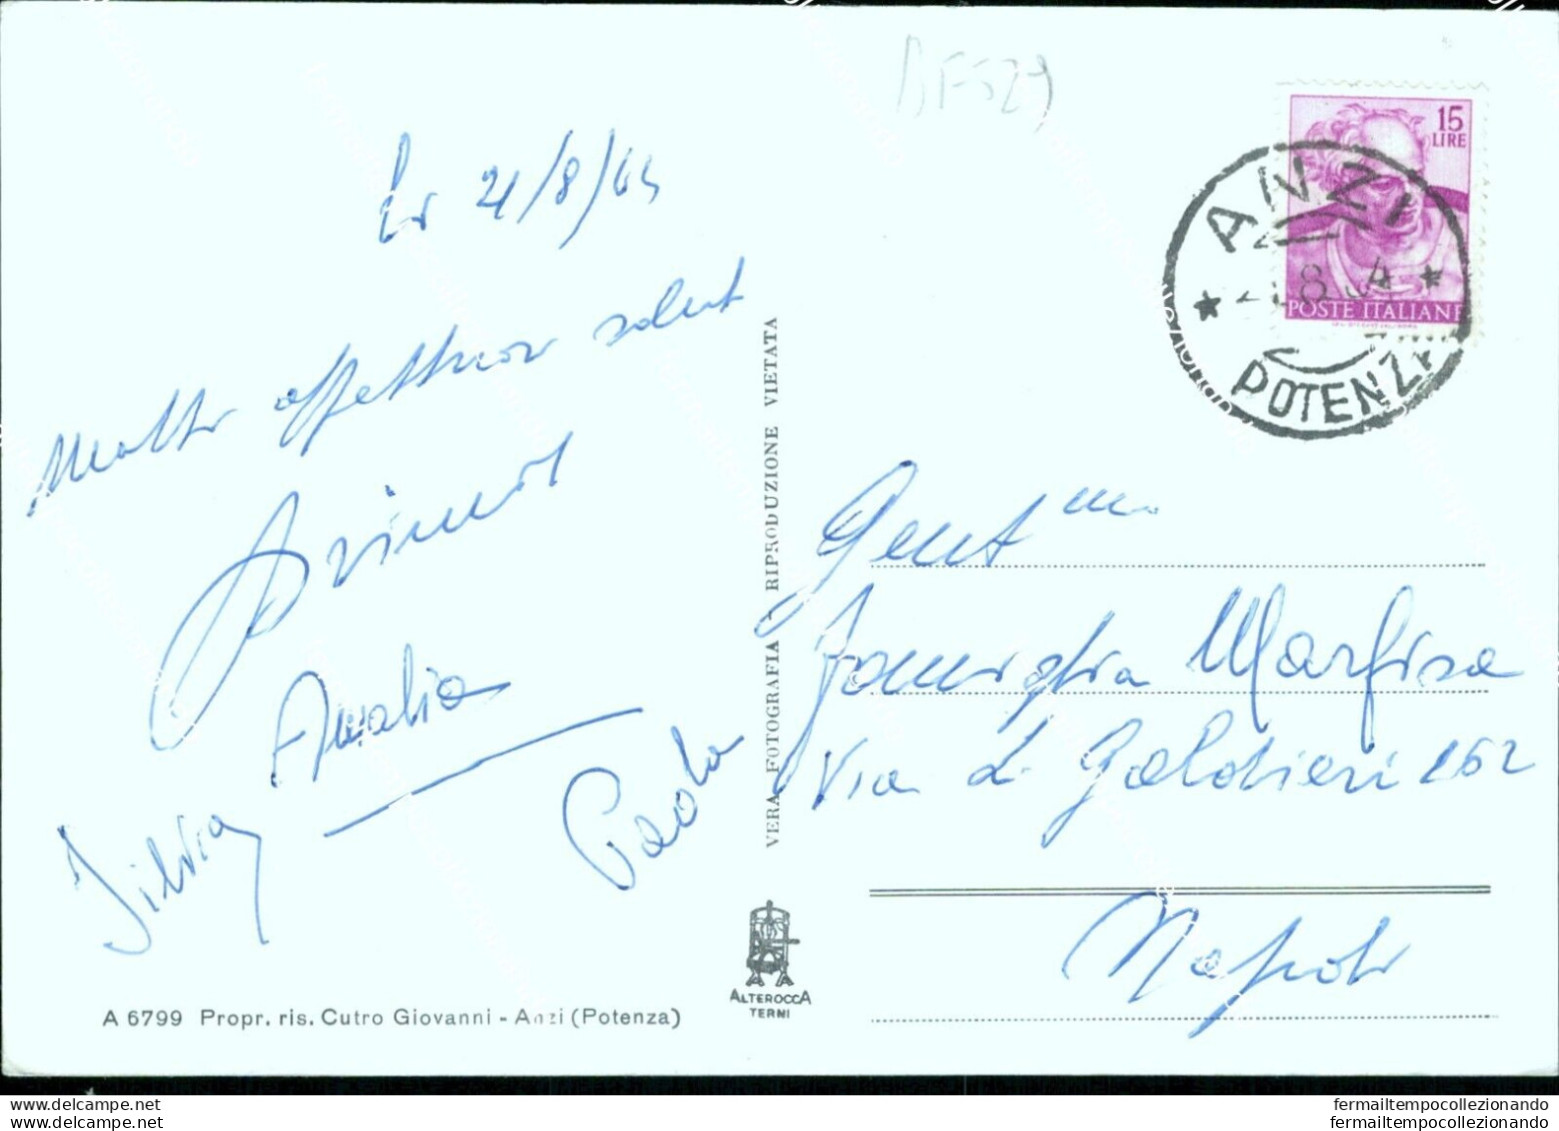 BF529
21/8/64
Molti affettuosi saluti
Amalia
Silvia
Paola
A 6799 Propr. ris. Cutro Giovanni - Anzi (Potenza)
VERA FOTOGRAFIA - RIPRODUZIONE VIETATA
ALTEROCCA
TERNI
15
LIRE
POSTE ITALIANE
ANZI
POTENZA
Gent.ma
Famiglia Marfisa
Via L. Galdieri 162
Napoli
www.delcampe.net
www.delcampe.net
fermailtempocollezionando
fermailtempocollezionando